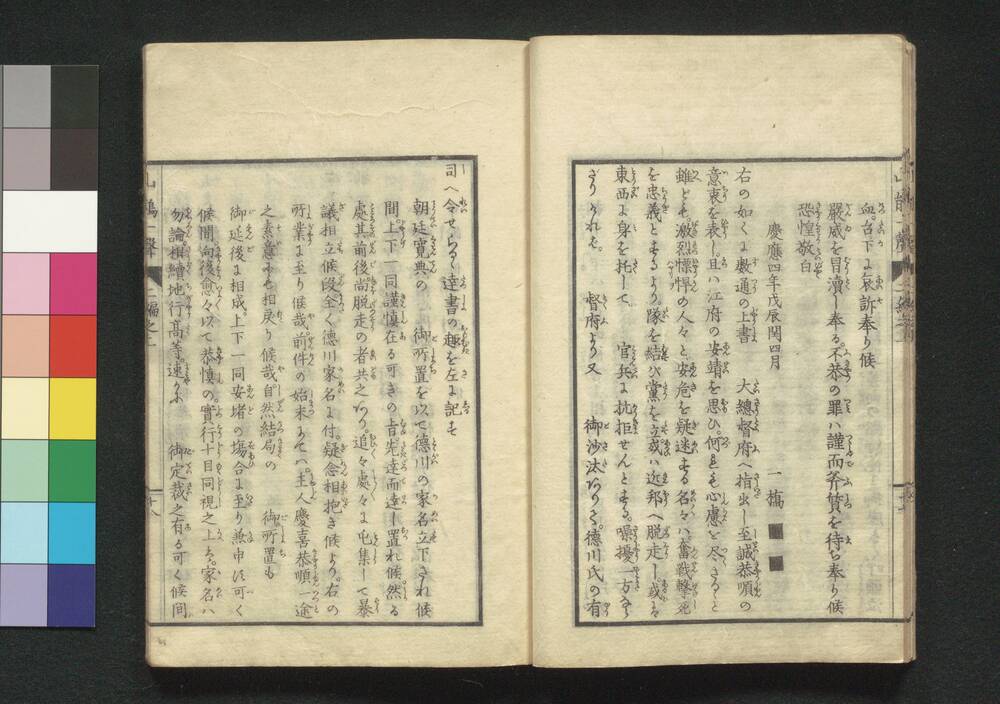 血泣召下よ哀訴奉り候
嚴威を冒瀆し奉る不恭の罪ハ謹而斧質を待ち奉り候
恐惶敬白
慶應四年戊辰閏四月
一橋■■
右の如くよ數通の上書 大總督府へ指出し至誠恭順の
意衷を表し且ハ江府の安靖を思ひ何も心慮を尽さると
雖ども激烈慓悍の人々と安危を疑迷する名々ハ奮戰擊死
を忠義とするより隊を結び黨を立或ハ近邦へ脱走し或は
東西よ身を托して 官兵よ抗拒せんとする噪擾一方な
らざりければ 督府より又 御沙汰ありて德川氏の有
司へ令せらるゝ達書の趣を左よ記す
朝廷寛典の 御所置を以て德川の家名立下され候
間上下一同謹愼在る可きの旨先達而達し置れ候然る
處其前後尚脱走の者共之あり追々處々よ屯集して暴
議相立候段全く德川家名よ付疑念相抱き候より右の
所業よ至り候哉前件の始末よてハ主人慶喜恭順一途
之素意にも相戻り候哉自然結局の 御所置も
御延後よ相成上下一同安堵の場合よ至り兼申す可く
候間向後愈々以て恭愼の實行十目同視之上ハ家名ハ
勿論相續地行高等速かに 御定裁之有る可く候間
二編之上
十八